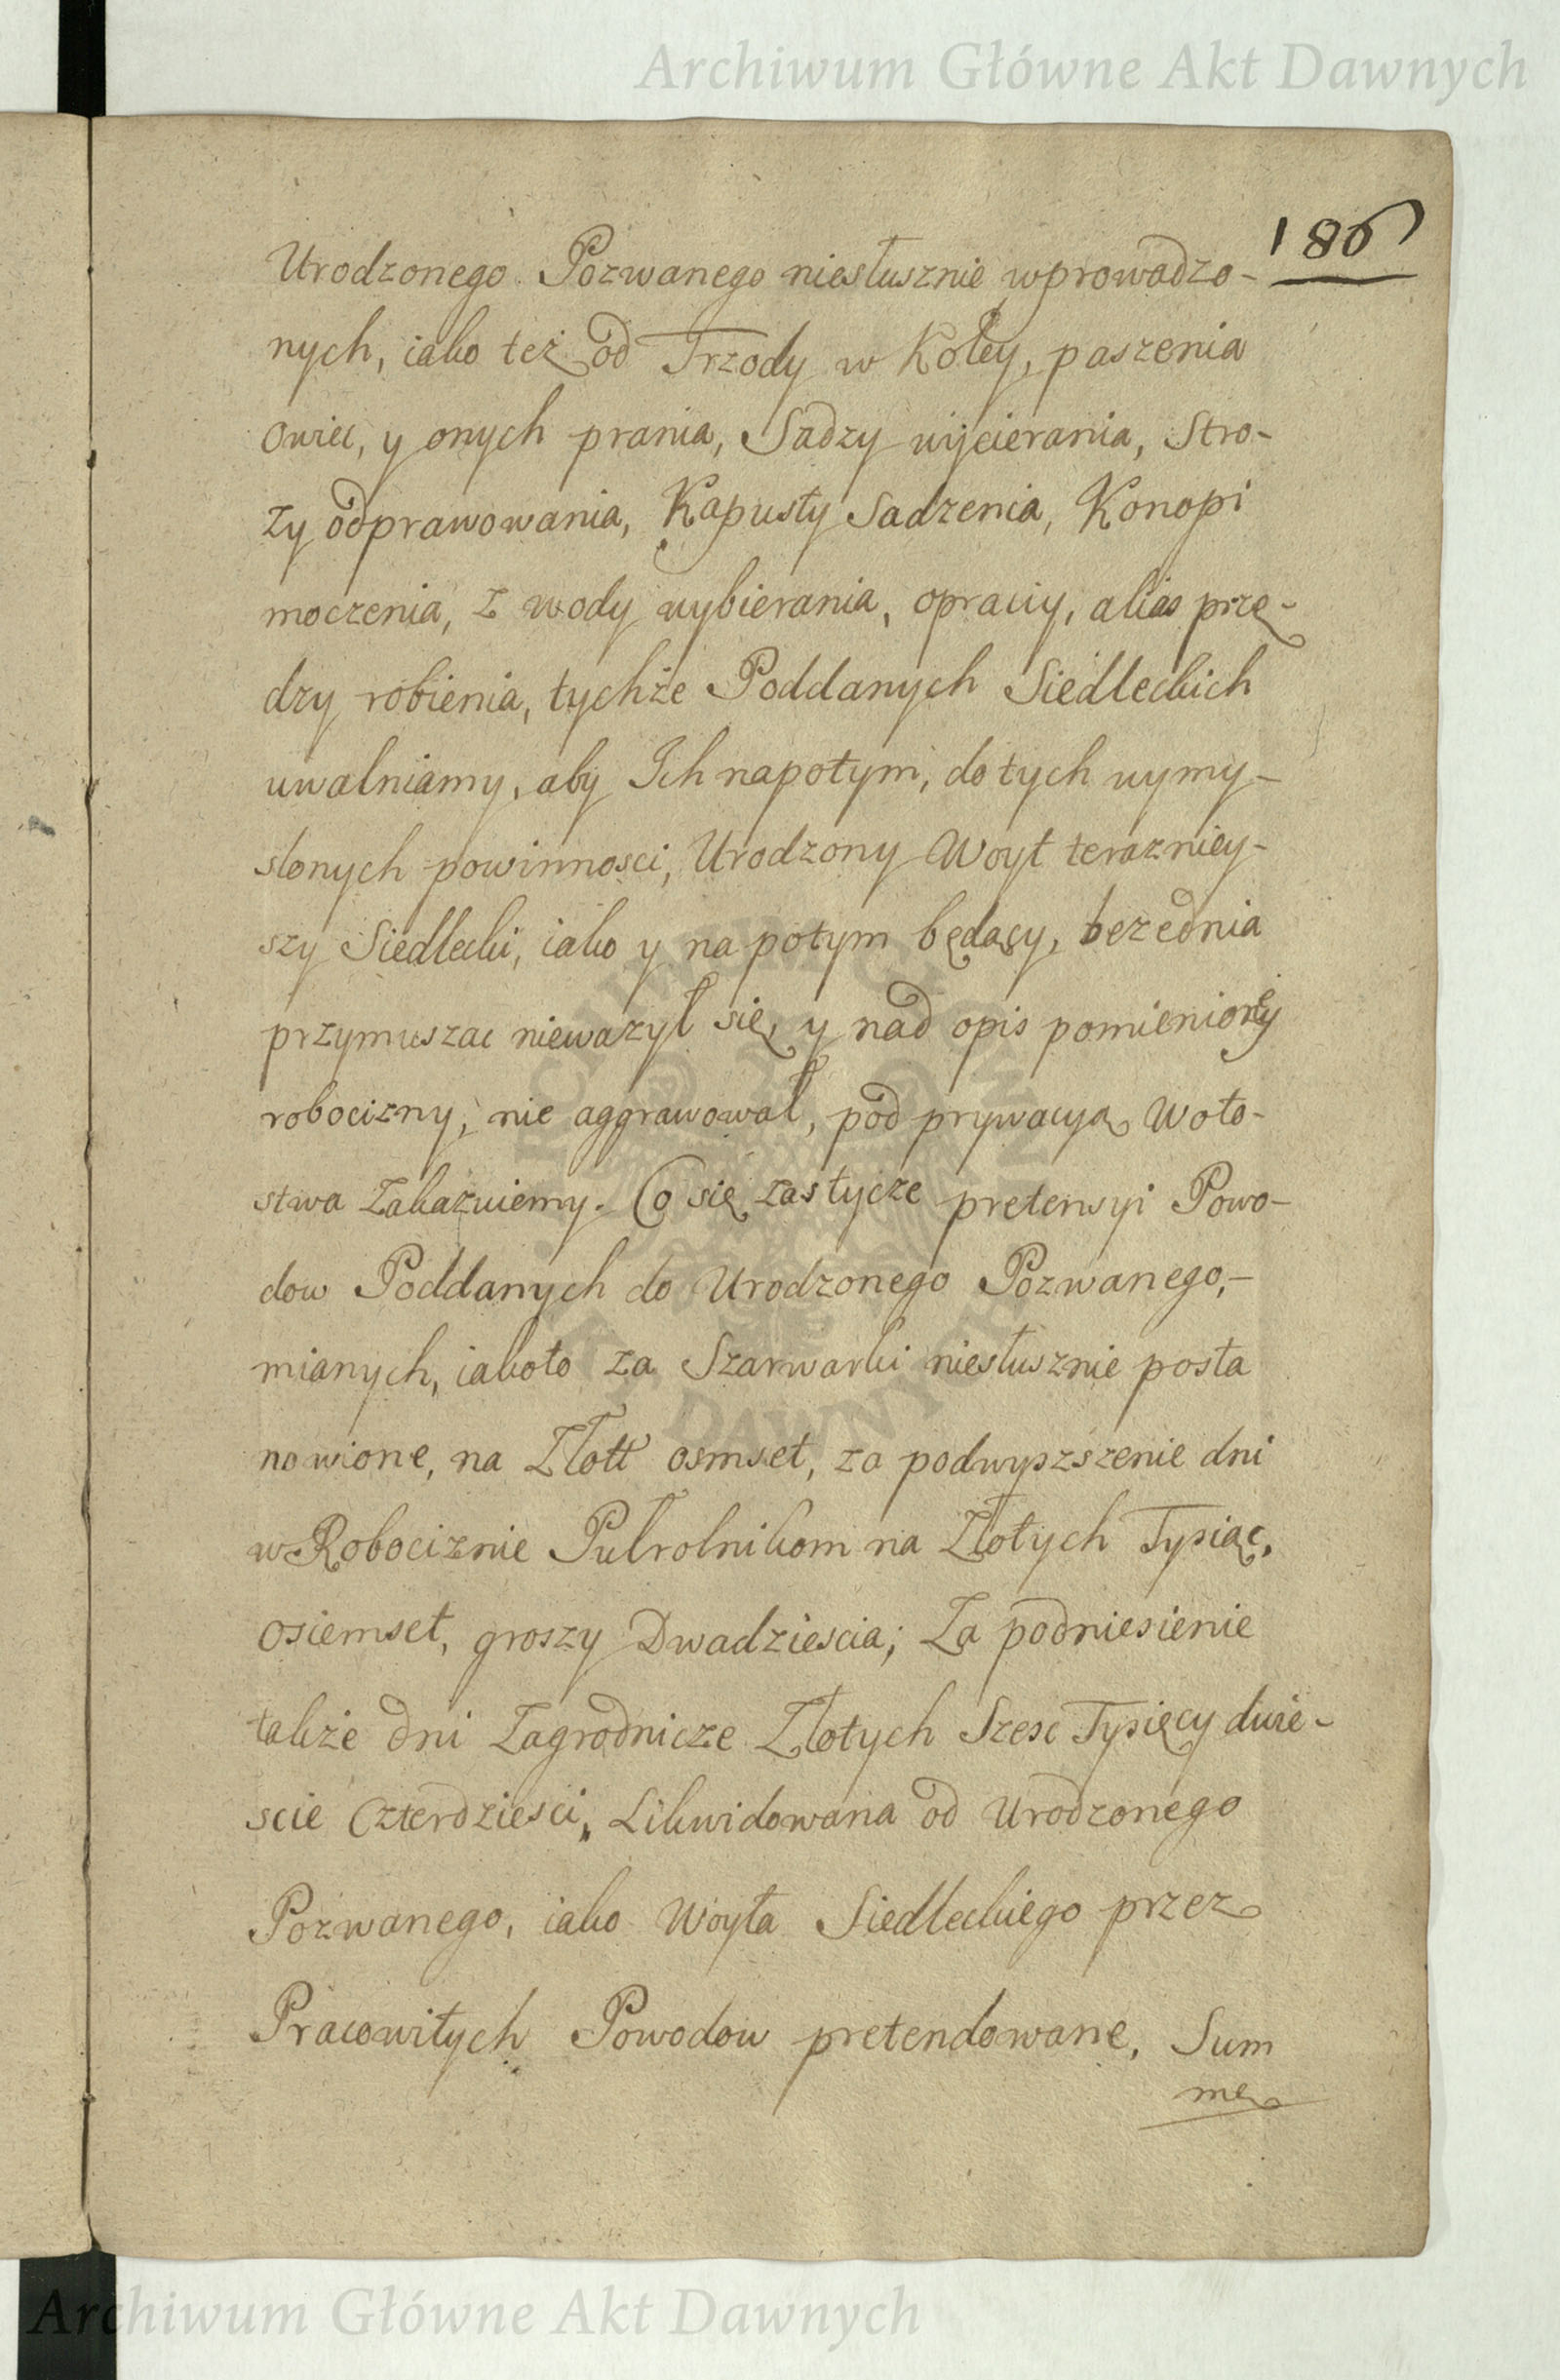 Archiwum Główne Akt Dawnych
186
Urodzonego Pozwanego niesłusznie wprowadzo-
nych, iako też od Trzody w Koley, paszenia
owiec, y onych prania, Sadzy wycierania, Stro-
ży odprawowania, Kapusty Sadzenia, Konopi
moczenia, z wody wybierania, oprawy, alias przę-
dzy robienia, tychże Poddanych Siedleckich
uwalniamy, aby Ich napotym, do tych wymy-
slonych powinnosci, Urodzony Woyt terazniey-
szy Siedlecki, iako y na potym będący,
przymuszac nieważył się, y nad opis pomieniony
robocizny, nie aggrawował, pod prywacyą Woto-
stwa zakazuiemy. Co się zas tycze pretensyi Powo-
dow Poddanych do Urodzonego Pozwanego,-
mianych, iakoto za Szarwarki niesłusznie posta
nowione, na Złott osmset, za podwyższenie dni
w Robociznie Pułrolnikom na Złotych Tysiąc,
osiemset, groszy Dwadziescia; Za podniesienie
także dni Zagrodnicze Złotych Szesc Tysięcy dwie-
scie Czterdziesci, Likwidowana od Urodzonego
Pozwanego, iako Woyta Siedleckiego przez
Pracowitych Powodow pretendowane, Sum
mę
ARCHIWUM GŁÓWNE AKT DAWNYCH
Archiwum Główne Akt Dawnych